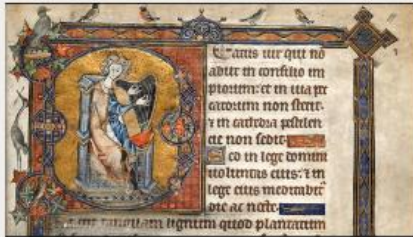 Eatus uir qui no
abiit in consilio im
piorum: et in uia pec
catorum non stetit:
et in cathedra pestilen
cie non sedit.
Sed in lege domini
uoluntas eius: et in
lege eius meditabit
die ac nocte.
Et erit tanquam lignum quod plantatum